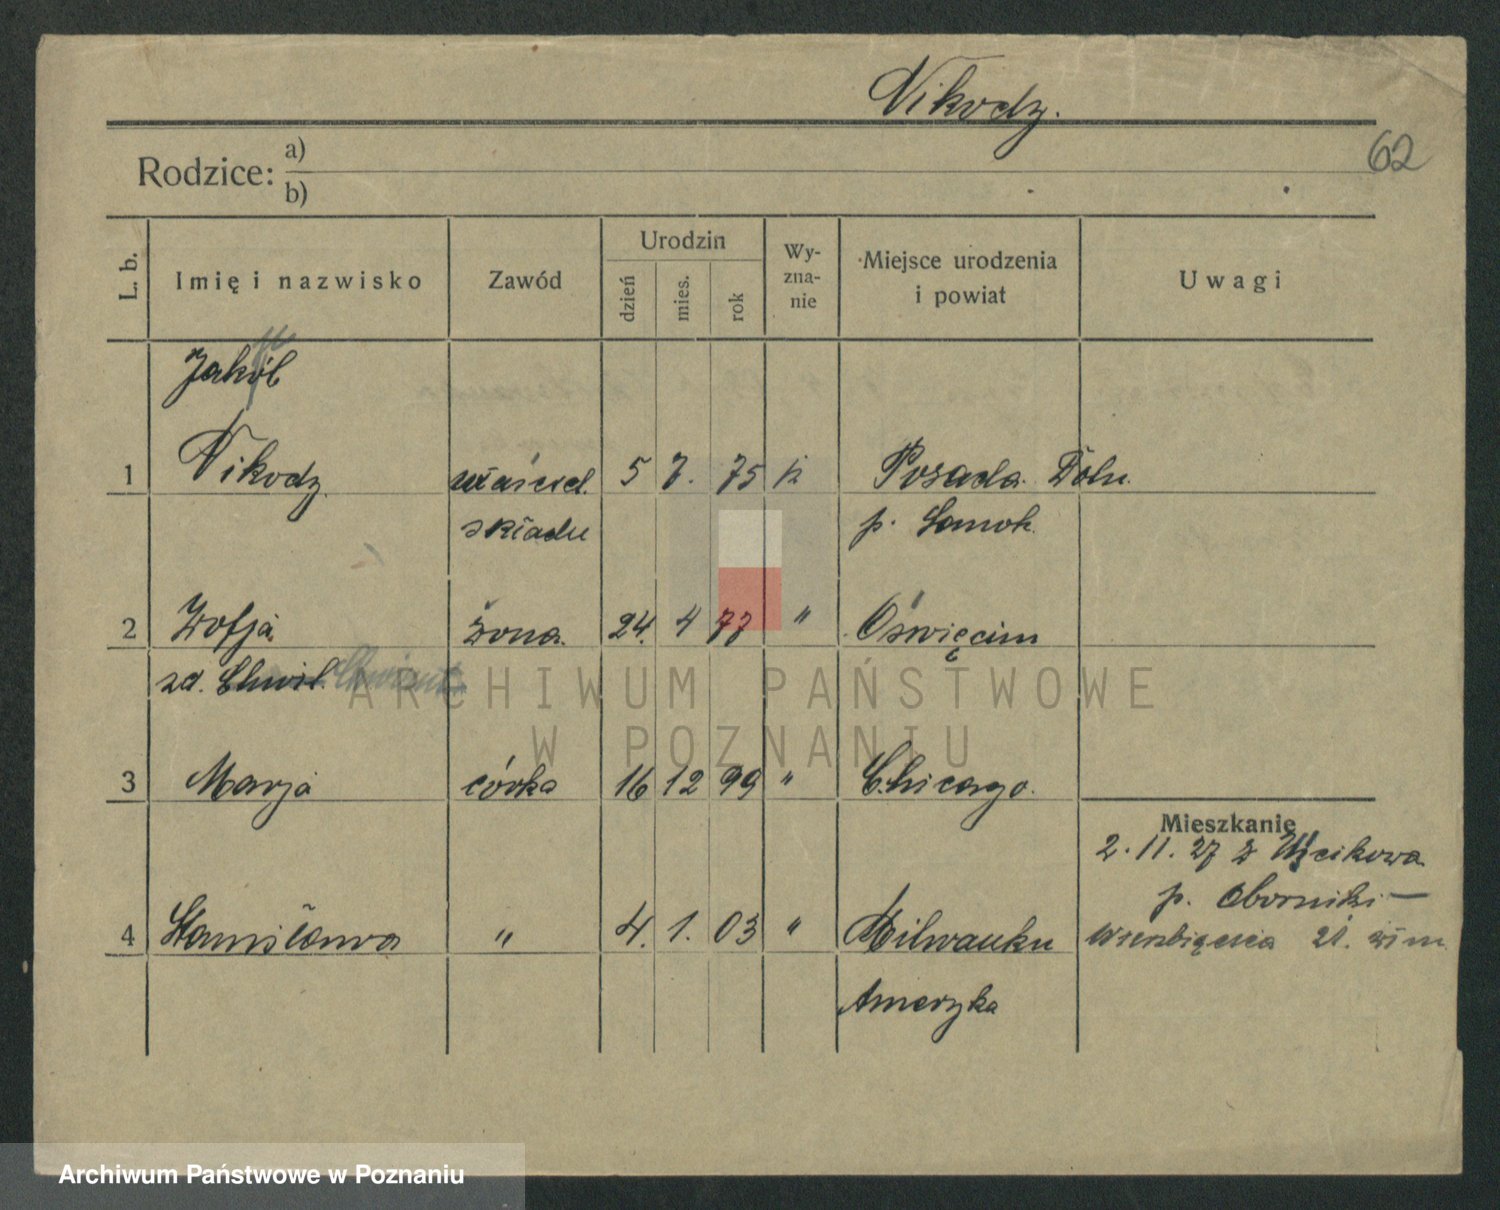 Nikodz.
62
Rodzice: a)
b)
L. b. Imię i nazwisko Zawód Urodzin dzień mies. rok Wy-zna-nie Miejsce urodzenia i powiat Uwagi
Jakób
1 Nikodz. właścicl. 5 7. 75 k Posada Doln.
składu p. Sanok
2 Zofja żona. 24. 4 77 " Oświęcim
zd. Chwil.
3 Marja córka 16 12 99 " Chicago.
Mieszkanie
2.11.27 z
p. Oborniki —
4 Stanisława " 4. 1. 03 " Milwauku 21.
Ameryka
ARCHIWUM PAŃSTWOWE
W POZNANIU
Archiwum Państwowe w Poznaniu